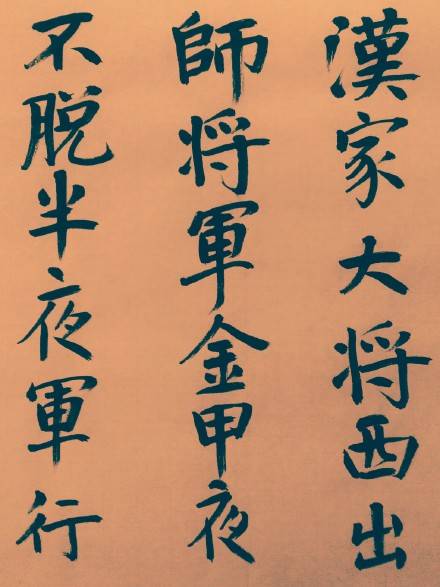 漢家大将西出
師将軍金甲夜
不脱半夜軍行